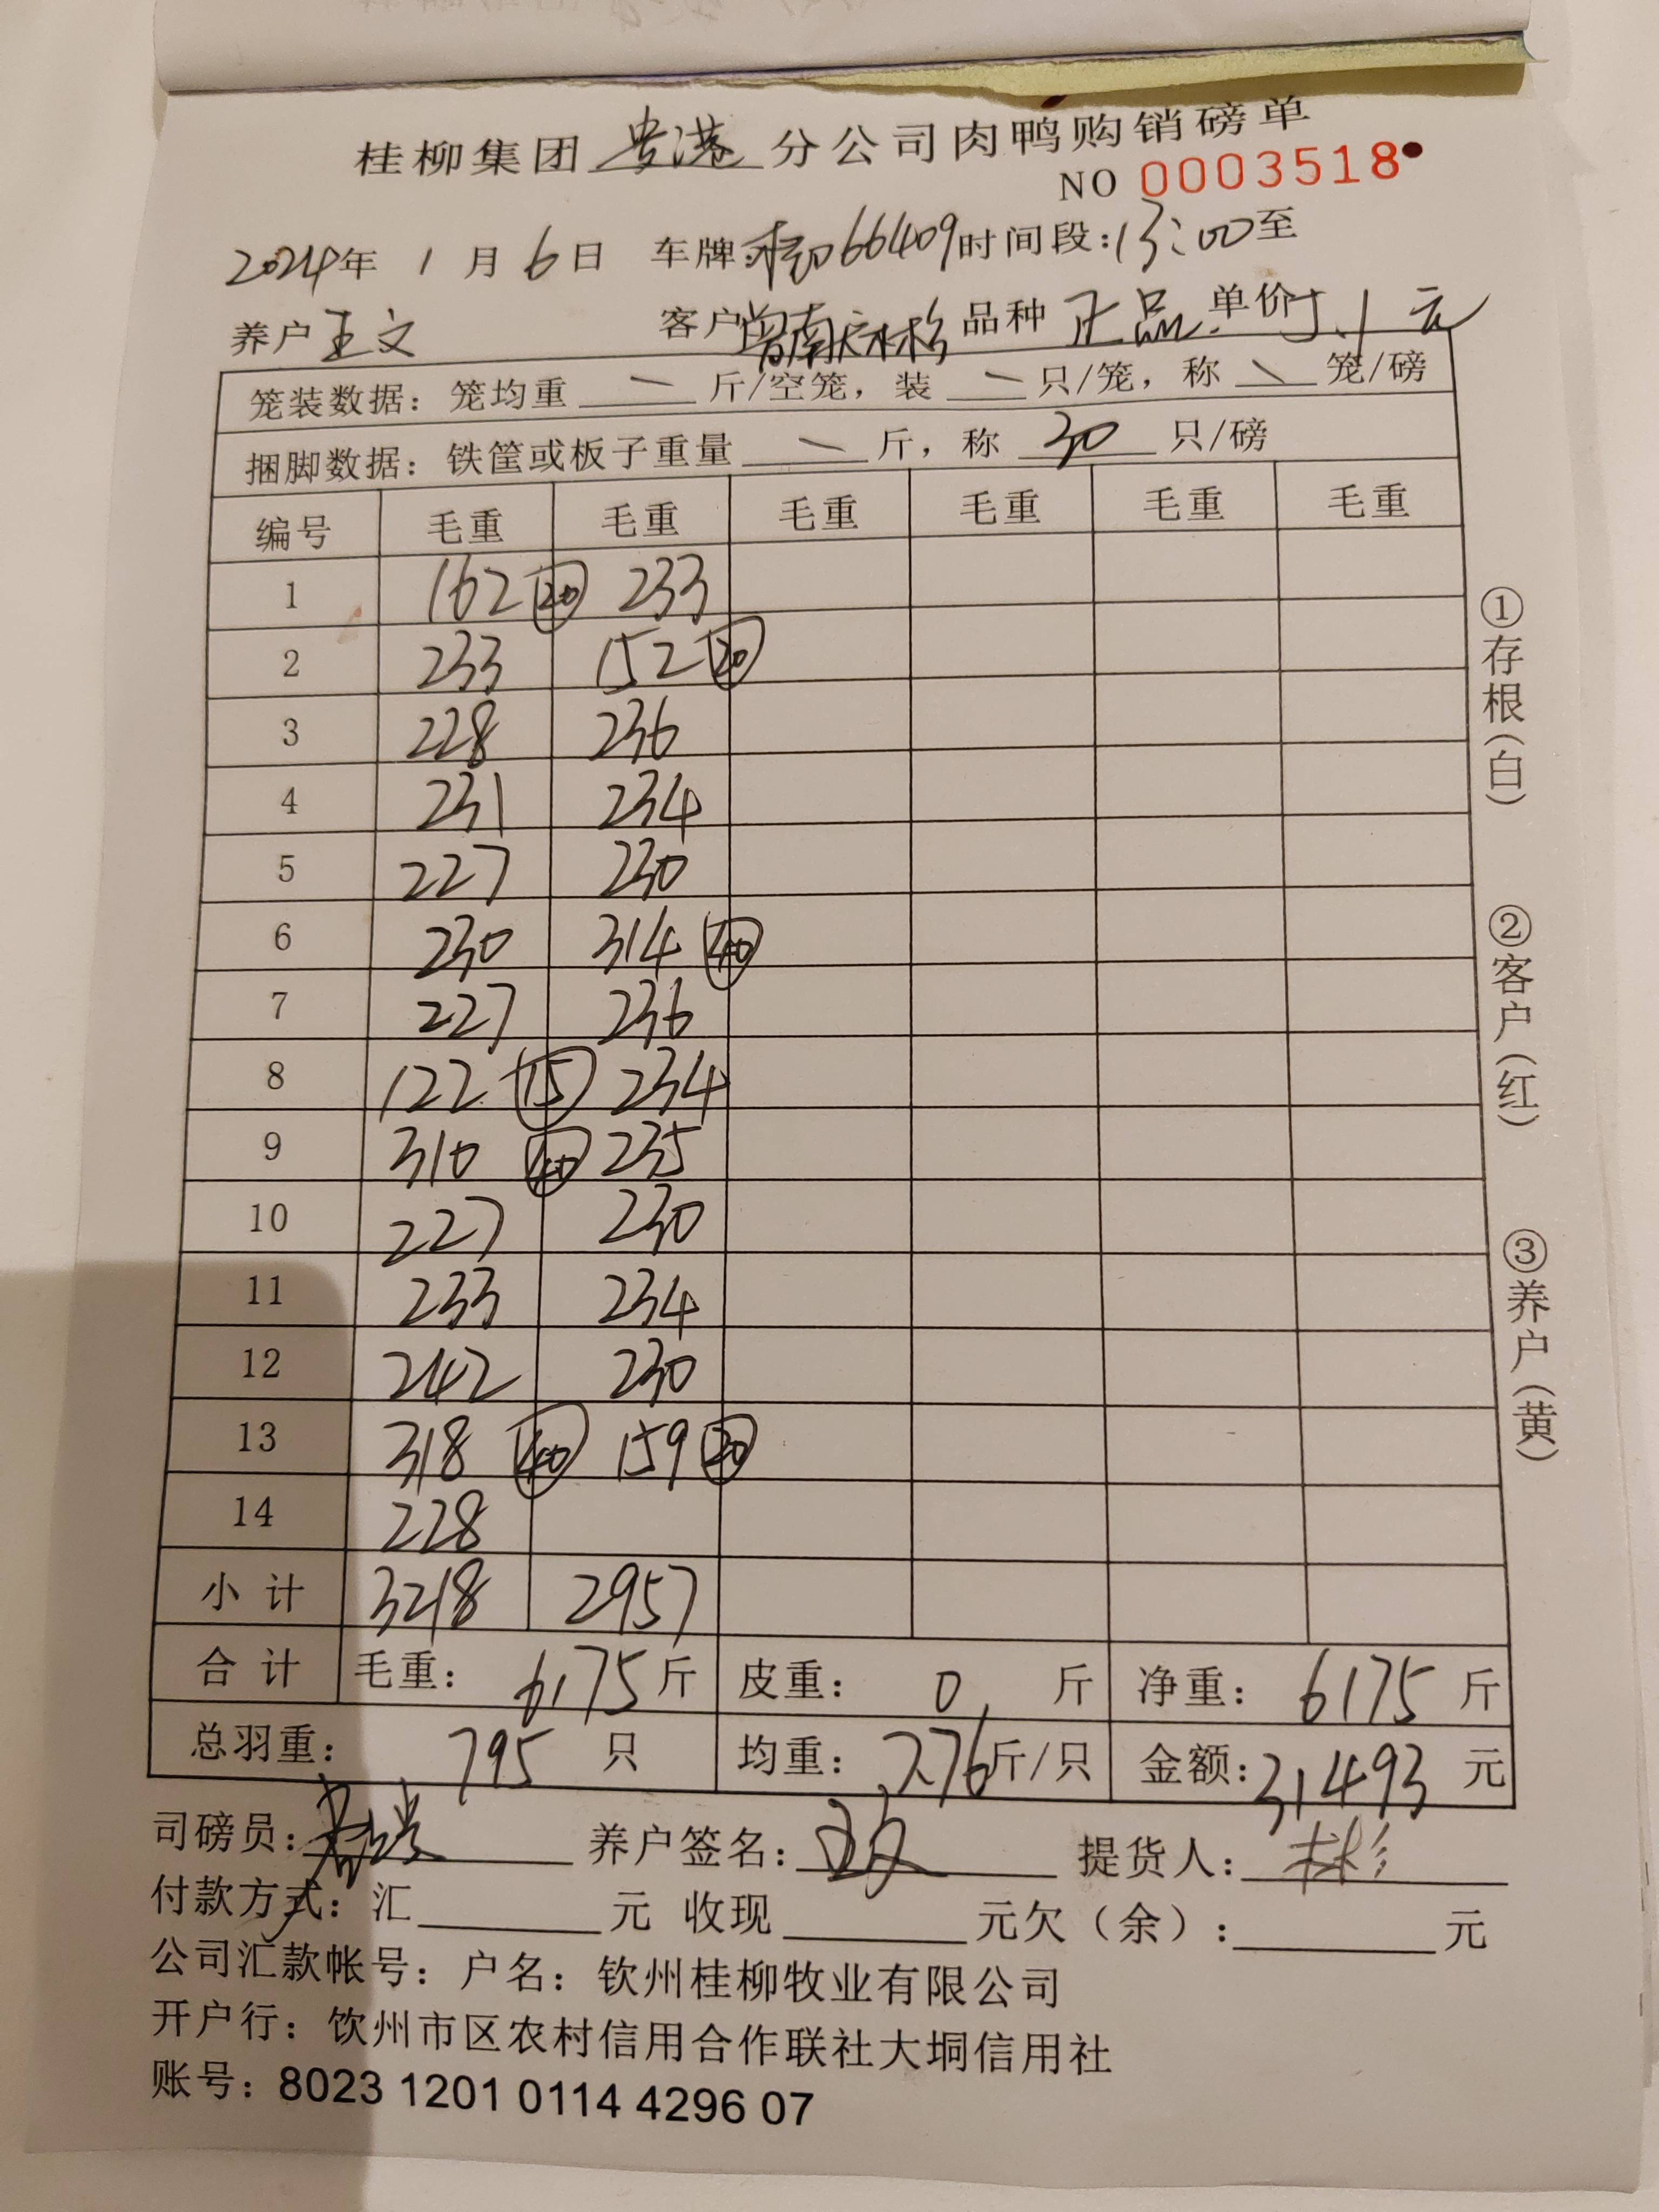 桂柳集团 贵港 分公司肉鸭购销磅单
NO 0003518
2024年 1 月 6 日 车牌: 66409 时间段:13:00至
养户 王文 客户 曾南庆林杉 品种 正品 单价 5.1 元
笼装数据：笼均重 — 斤/空笼，装 — 只/笼，称 — 笼/磅
捆脚数据：铁筐或板子重量 — 斤，称 30 只/磅
编号 毛重 毛重 毛重 毛重 毛重 毛重
1 162 20 233
2 233 152 20
3 228 236
4 231 234
5 227 230
6 230 314 40
7 227 236
8 122 15 234
9 310 40 235
10 227 230
11 233 234
12 242 230
13 318 40 159 20
14 228
小计 3218 2957
合计 毛重： 6175 斤 皮重： 0 斤 净重： 6175 斤
总羽重： 795 只 均重： 7.76 斤/只 金额: 31493 元
司磅员: 养户签名: 王文 提货人: 林杉
付款方式：汇 元 收现 元欠（余）: 元
公司汇款帐号：户名：钦州桂柳牧业有限公司
开户行：饮州市区农村信用合作联社大垌信用社
账号：8023 1201 0114 4296 07
①存根（白）
②客户（红）
③养户（黄）